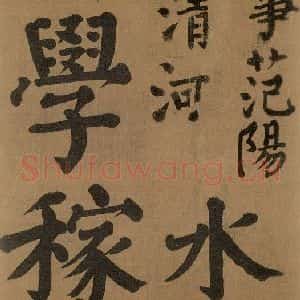 事范陽
清河
水
學稼
Shufawang.cn